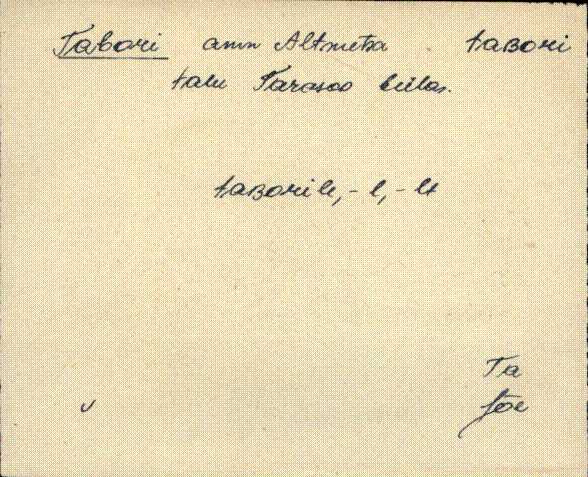 Tabori amn Altmetsa taʙori
talu Tarasoo külas.
taʙorile, -l, -lt
Ta